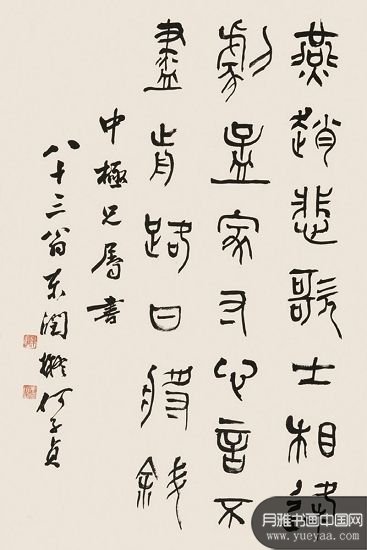 燕趙悲歌士相逢
劇孟家寸心言不
盡前路日將斜
中極兄屬書
八十三翁东潤擬何子貞
月雅书画中国网
www.yueyaa.com